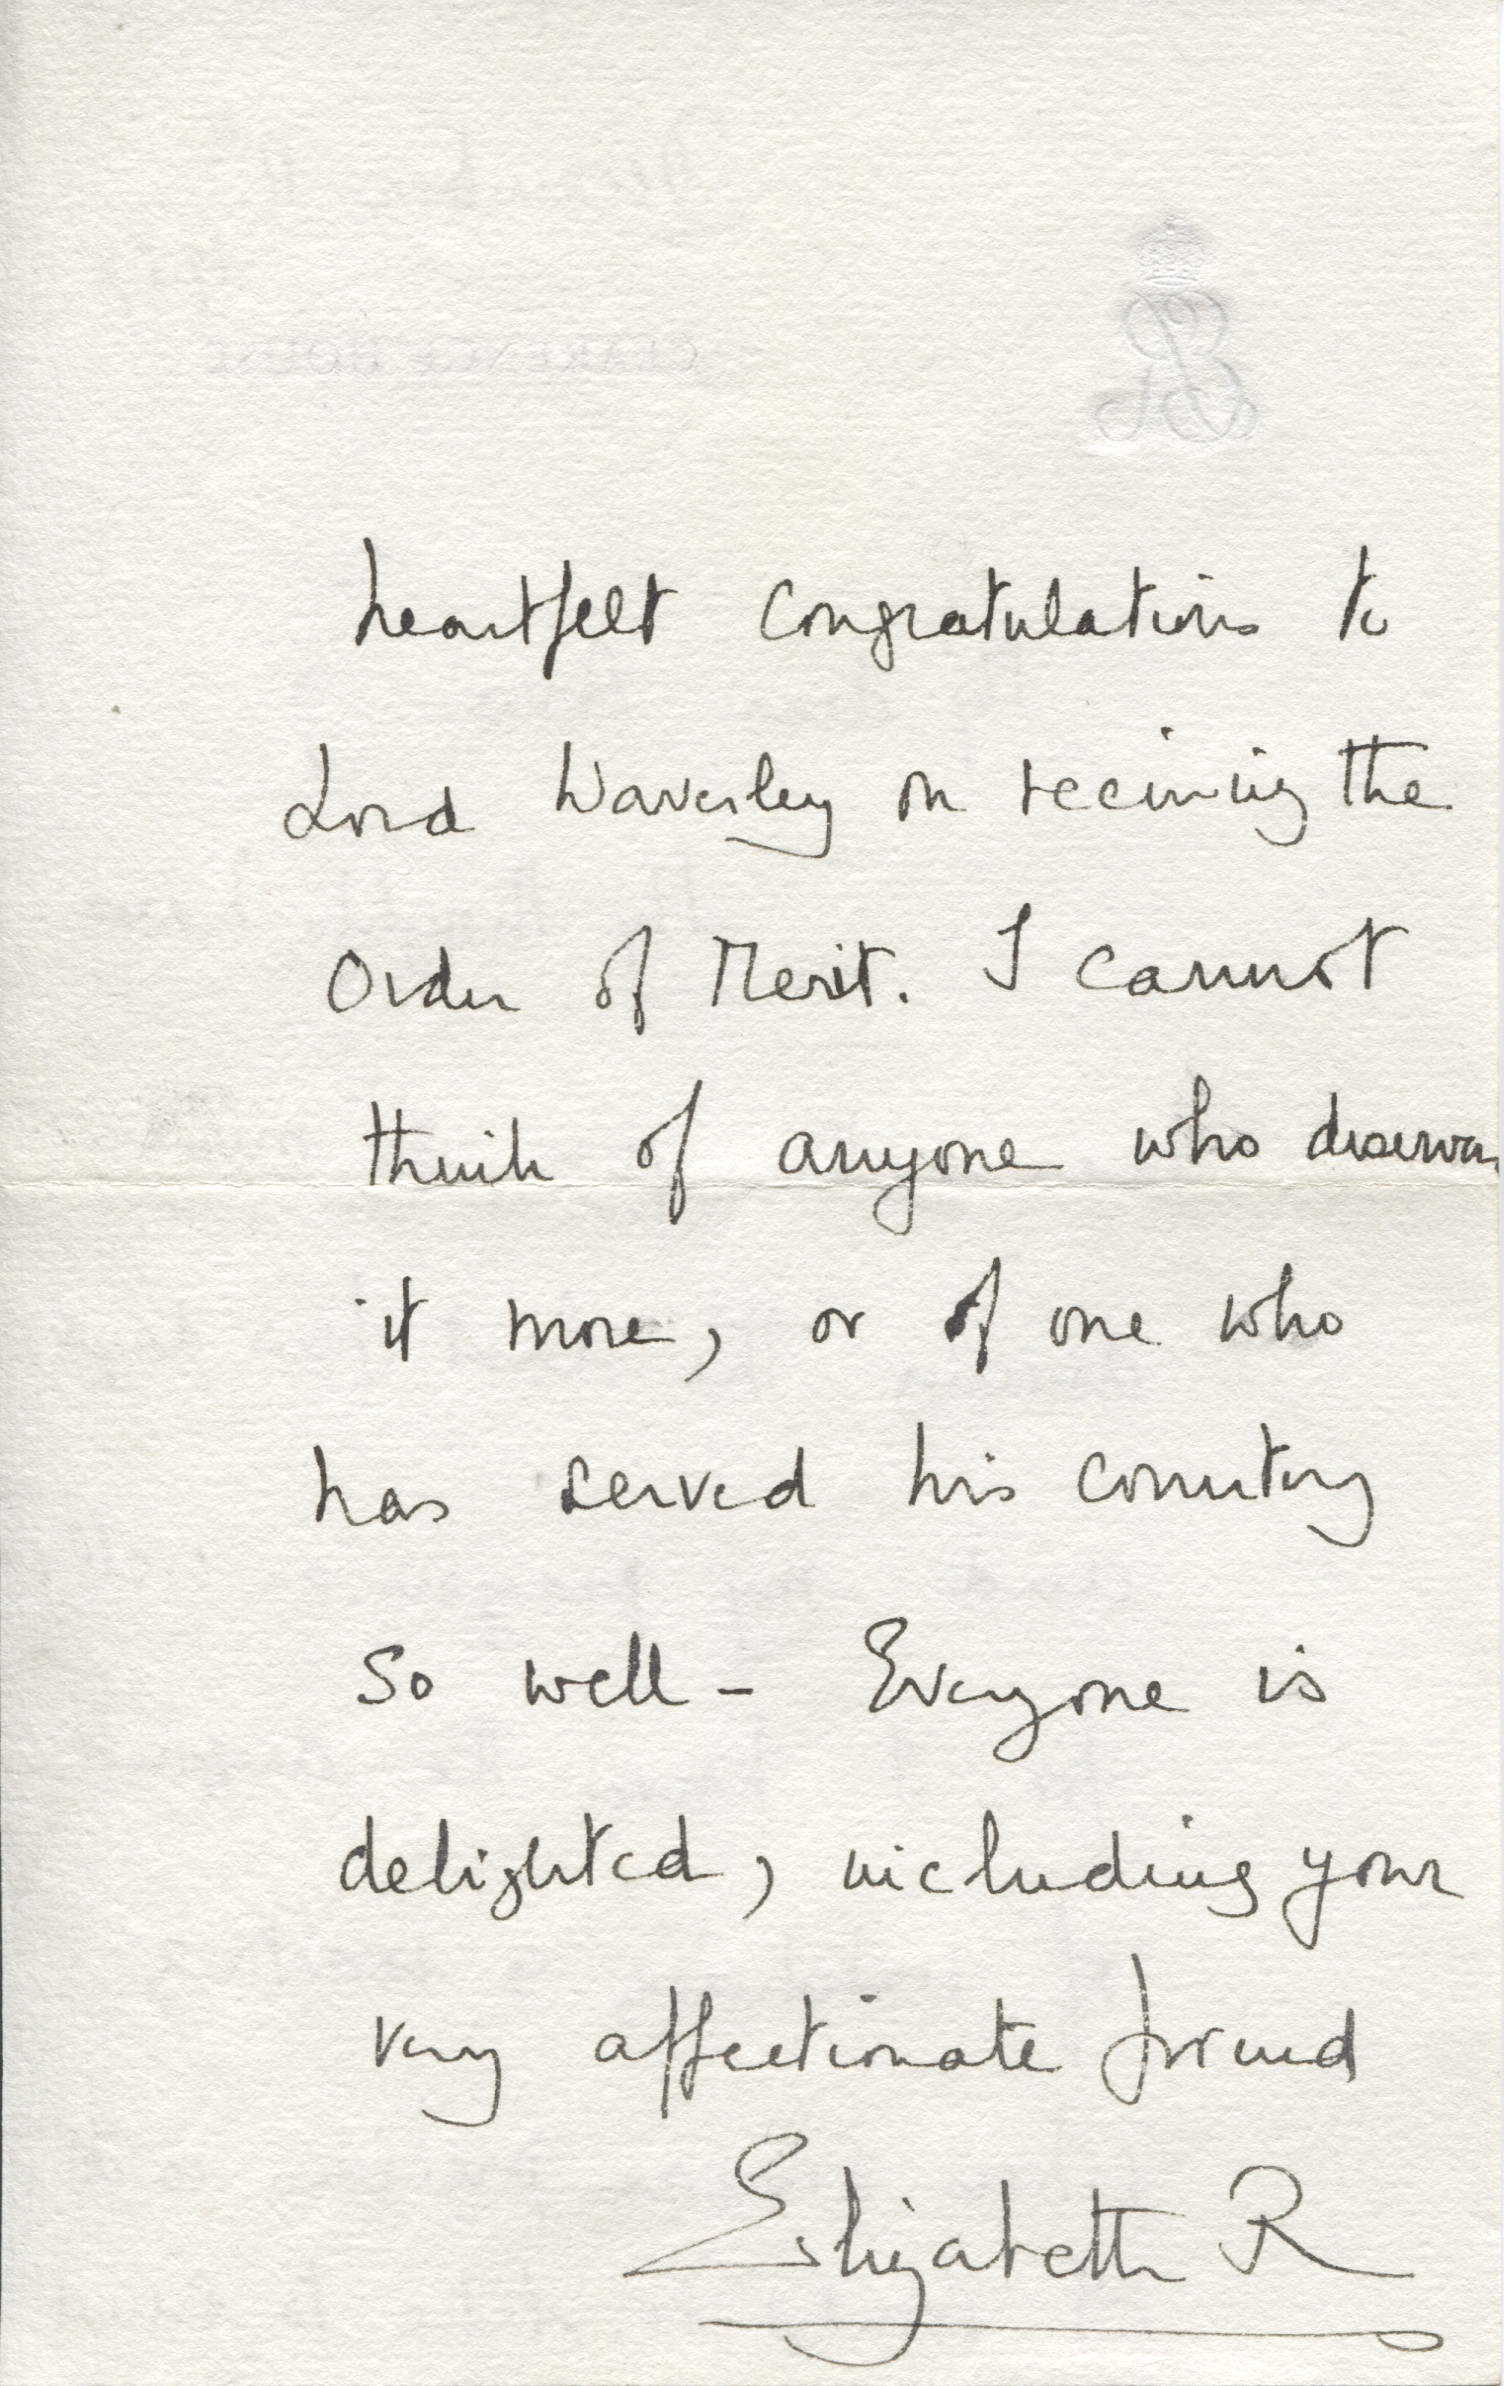 CLARENCE HOUSE
heartfelt congratulations to
Lord Waverley on receiving the
Order of Merit. I cannot
think of anyone who deserves
it more, or of one who
has served his country
so well – Everyone is
delighted, including your
very affectionate friend
Elizabeth R